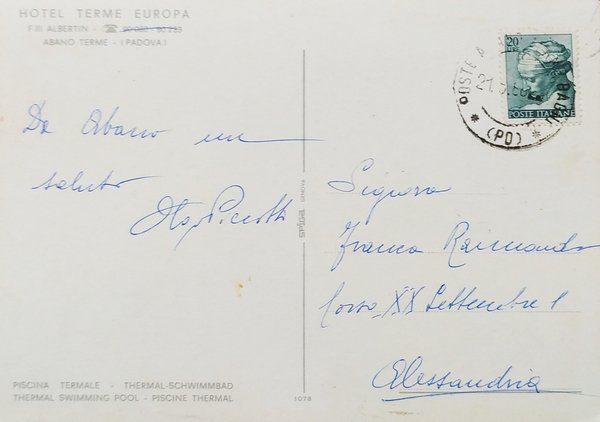 HOTEL TERME EUROPA
F.lli ALBERTIN - ☎ 90 030 90 233
ABANO TERME - (PADOVA)
Da Abano un
saluto
Olga Piccotti
PISCINA TERMALE - THERMAL-SCHWIMMBAD
THERMAL SWIMMING POOL - PISCINE THERMAL
1078
GENOVA
20
POSTE ITALIANE
POSTE
(PD)
Signora
Franca Raimondo
Corso XX Settembre 1
Alessandria